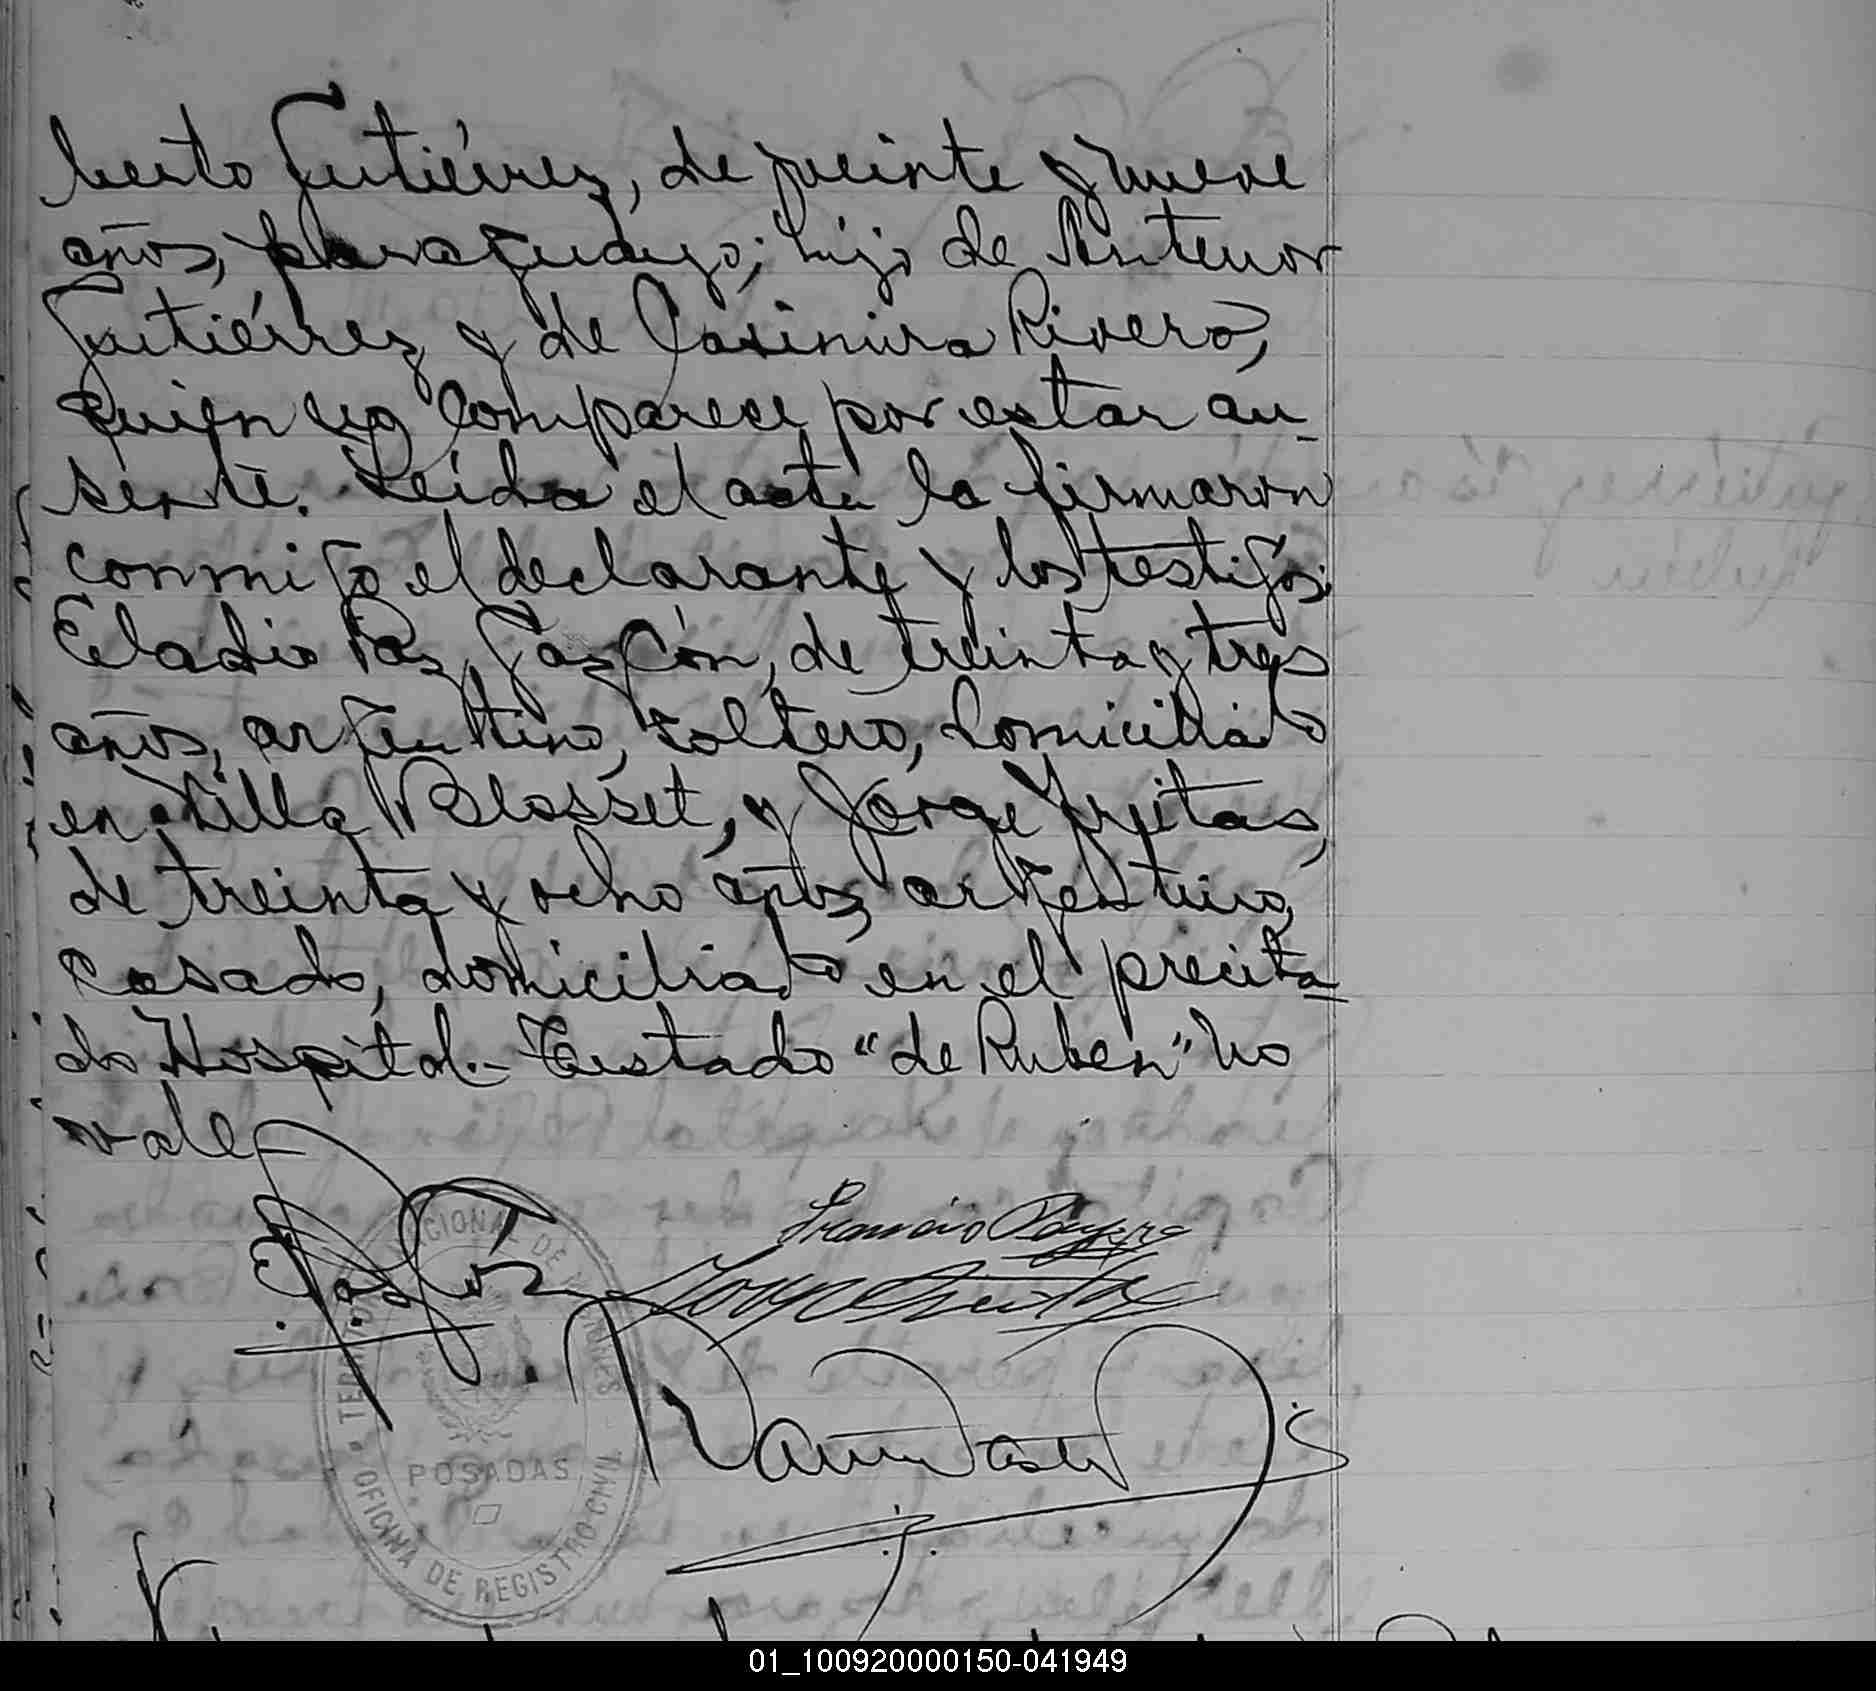 berto Gutiérrez, de veinte y nueve
años, paraguayo; hijo de Antenor
Gutiérrez y de Casimira Rivero,
quien no comparece por estar au-
sente. Leída el acta la firmaron
conmigo el declarante y los testigos;
Eladio Paz Gascón, de treinta y tres
años, argentino, soltero, domiciliado
en Villa Blosset, y Jorge Freitas,
de treinta y ocho años, argentino,
casado, domiciliado en el precita-
do Hospital.- Testado "de Ruben" no
vale
TERRITORIO NACIONAL DE MISIONES
POSADAS
OFICINA DE REGISTRO CIVIL
01_100920000150-041949